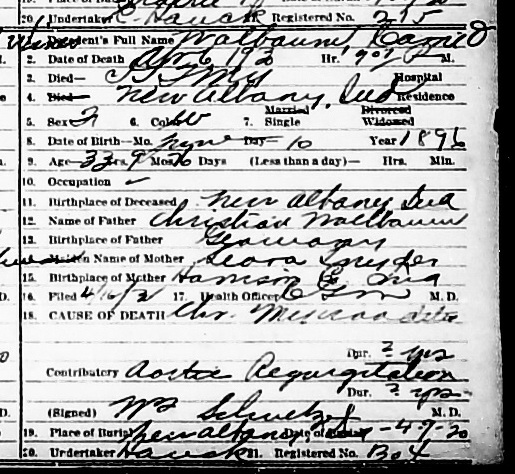 20. Undertaker Hauck Registered No. 215
Decedent's Full Name Walbaum,
2. Date of Death Apr 6 1920 Hr. 907 P M.
3. Died— Hospital
4. Died— New Albany, Ind Residence
5. Sex F 6. Color W 7. Married Single Divorced Widowed
8. Date of Birth—Mo. Day— 10 Year 1896
9. Age— 33 Yrs. 9 Mos. 26 Days (Less than a day)— Hrs. Min.
10. Occupation ✓
11. Birthplace of Deceased New Albany Ind
12. Name of Father Christian Walbaum
13. Birthplace of Father Germany
Maiden Name of Mother Leora Snyder
15. Birthplace of Mother Harrison Co. Ind
16. Filed 17. Health Officer M. D.
18. CAUSE OF DEATH Chr. Myocarditis
Dur. ? yrs
Contributory Aortic Regurgitation
Dur. ? yrs
(Signed) M. D.
19. Place of Burial New Albany Date of Burial 4-9-20
20. Undertaker Hauck 21. Registered No. B04